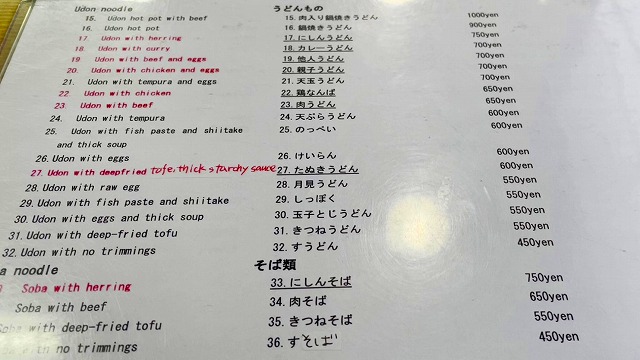 Udon noodle うどんもの
15. Udon hot pot with beef 15. 肉入り鍋焼きうどん 1000yen
16. Udon hot pot 16. 鍋焼きうどん 900yen
17. Udon with herring 17. にしんうどん 750yen
18. Udon with curry 18. カレーうどん 700yen
19 Udon with beef and eggs 19. 他人うどん 700yen
20. Udon with chicken and eggs 20. 親子うどん 700yen
21. Udon with tempura and eggs 21. 天玉うどん 700yen
22 Udon with chicken 22. 鶏なんば 650yen
23. Udon with beef 23. 肉うどん 650yen
24. Udon with tempura 24. 天ぷらうどん 600yen
25. Udon with fish paste and shiitake 25. のっぺい 600yen
and thick soup
26. Udon with eggs 26. けいらん 600yen
27. Udon with deepfried tofe, thick starchy sauce 27. たぬきうどん 600yen
28. Udon with raw egg 28. 月見うどん 550yen
29. Udon with fish paste and shiitake 29. しっぽく 550yen
30. Udon with eggs and thick soup 30. 玉子とじうどん 550yen
31. Udon with deep-fried tofu 31. きつねうどん 550yen
32. Udon with no trimmings 32. すうどん 450yen
a noodle そば類
3 Soba with herring 33. にしんそば 750yen
Soba with beef 34. 肉そば 650yen
Soba with deep-fried tofu 35. きつねそば 550yen
with no trimmings 36. すそば 450yen